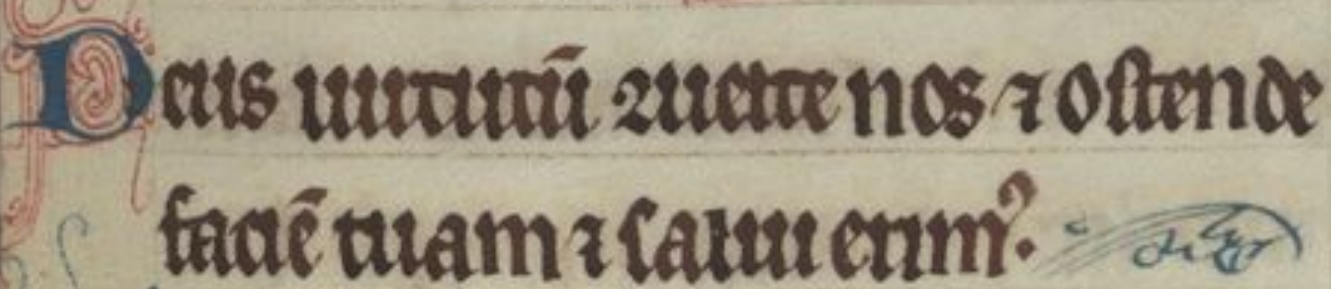 Deus uirtutū ꝯuerte nos ⁊ oſtende
faciē tuam ⁊ ſalui erimꝰ.